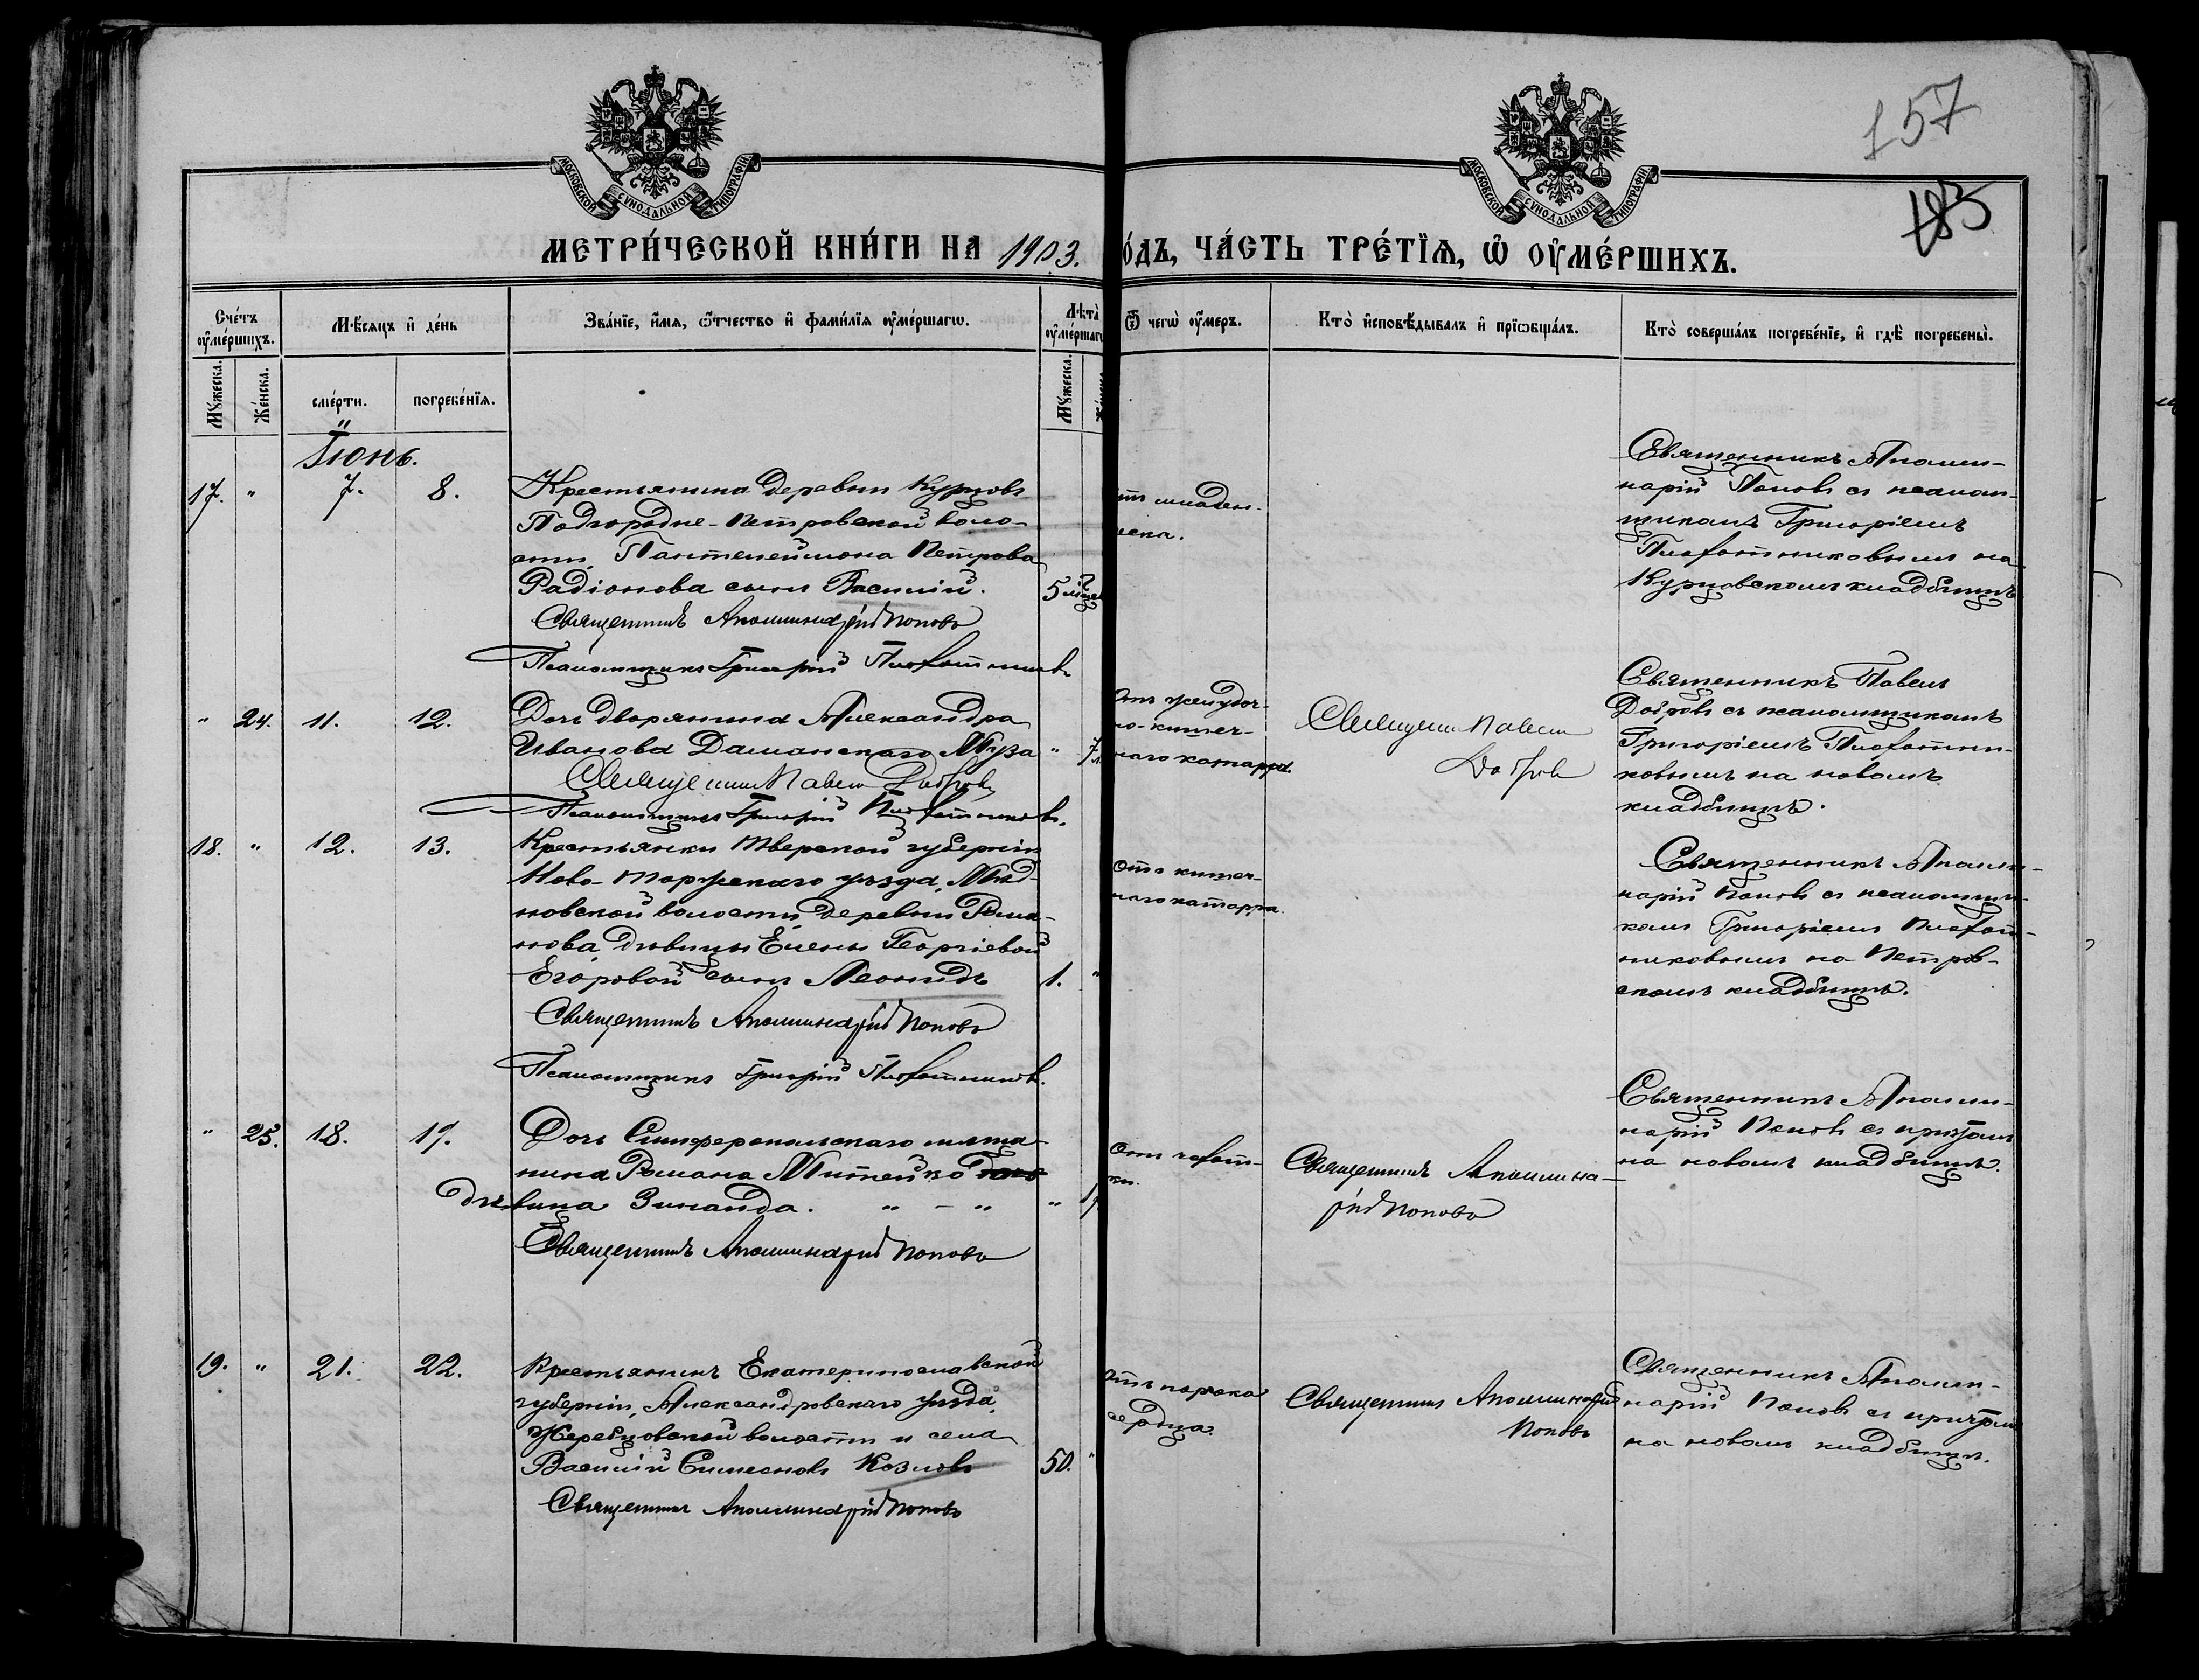 157
183
МОСКОВСКОЙ СУНОДАЛЬНОЙ ТИПОГРАФІИ
МОСКОВСКОЙ СУНОДАЛЬНОЙ ТИПОГРАФІИ
МЕТРИ́ЧЕСКОЙ КНИ́ГИ НА 1903. О́ДЪ, ЧА́СТЬ ТРЕ́ТЇѦ, Ѿ ОУ҆МЕ́РШИХЪ.
Сче́тъ оу҆ме́ршихъ.
Мѣ́сяцъ и҆ де́нь
Зва́нїе, и҆́мя, ѻ҆́тчество и҆ фами́лїя оу҆ме́ршагѡ.
Лѣ́та оу҆ме́ршаг
Ѿ чегѡ̀ оу҆́меръ.
Кто̀ и҆сповѣ́дывалъ и҆ прїѡбща́лъ.
Кто̀ соверша́лъ погребе́нїе, и҆ гдѣ̀ погребены̀.
Му́жеска.
Же́нска.
сме́рти.
погребе́нїя.
Му́жеска.
Іюнь.
17. " 7. 8.
Крестьянина деревни Курцовъ
Подгородне-Петровской воло-
сти, Пантелеймона Петрова
Радіонова сынъ Василій.
5 мѣсяц
Священникъ Аполлинарій Поповъ
Псаломщикъ Григорій Плоfотниковъ
младен-
ческа.
Священникъ Аполли-
нарій Поповъ съ псалом-
щикомъ Григоріемъ
Плоfотниковымъ на
Курцовскомъ кладбищѣ
" 24. 11. 12.
Дочь дворянина Александра
Иванова Даманскаго Муза " 7 л.
Священникъ Павелъ Добровъ
Псаломщикъ Григорій Плоfотниковъ.
Отъ желудоч-
но-кишеч-
наго катарра.
Священникъ Павелъ
Добровъ
Священникъ Павелъ
Добровъ съ псаломщикомъ
Григоріемъ Плоfотни-
ковымъ на новомъ
кладбищѣ.
18. " 12. 13.
Крестьянки Тверской губерніи
Ново-Торжскаго уѣзда, Мѣд-
новской волости, деревни Рома-
нова, дѣвицы Елены Георгіевой
Егоровой сынъ Леонидъ 1. "
Священникъ Аполлинарій Поповъ
Псаломщикъ Григорій Плоfотниковъ.
Отъ кишеч-
наго катарра.
Священникъ Аполли-
нарій Поповъ съ псаломщи-
комъ Григоріемъ Плоfот-
никовымъ на Петров-
скомъ кладбищѣ.
" 25. 18. 19.
Дочь Симферопольскаго мѣща-
нина Романа Митейко
дѣвица Зинаида. " - " "
Священникъ Аполлинарій Поповъ
Отъ чаfот-
ки.
Священникъ Аполлина-
рій Поповъ
Священникъ Аполли-
нарій Поповъ съ причтомъ
на новомъ кладбищѣ.
19. " 21. 22.
Крестьянинъ Екатеринославской
губерніи, Александровскаго уѣзда,
Жеребцовской волости и села
Василій Симеоновъ Козловъ 50. "
Священникъ Аполлинарій Поповъ
Отъ порока
сердца.
Священникъ Аполлинарій
Поповъ
Священникъ Аполли-
нарій Поповъ съ причтомъ
на новомъ кладбищѣ.